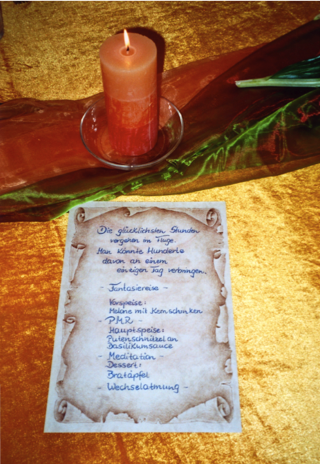 Die glücklichsten Stunden
vergehen im Fluge.
Man könnte Hunderte
davon an einem
einzigen Tag verbringen.
- Fantasiereise -
Vorspeise:
Melone mit Kernschinken
- PMR -
Hauptspeise:
Putenschnitzel an
Basilikumsauce
- Meditation -
Dessert:
Bratäpfel
- Wechselatmung -